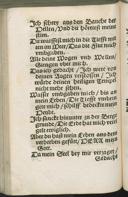 Ich schrey aus dem Bauche der
Hellen / und du hörest meine
stim.
Du wurffest mich in die Tieffe mit-
ten im Meer / Das die Flut mich
umbgaben.
Alle deine Wogen und Wellen /
Giengen uber mich.
Das ich gedacht / Ich were von
deinen Augen verstossen / Ich
würde deinen heiligen Tempel
nicht mehr sehen.
Wasser umbgaben mich / bis an
mein Leben / Die Tieffe umbrin-
gete mich / schilff bedeckte mein
Heubt.
Ich sanck hinunter zu der Berge
grunde / Die Erde hat mich ver-
rigelt ewiglich.
Aber du hast mein Leben aus dem
verderben gefürt / HERR mein
Gott.
Da mein Seel bey mir verzaget /
Gedacht